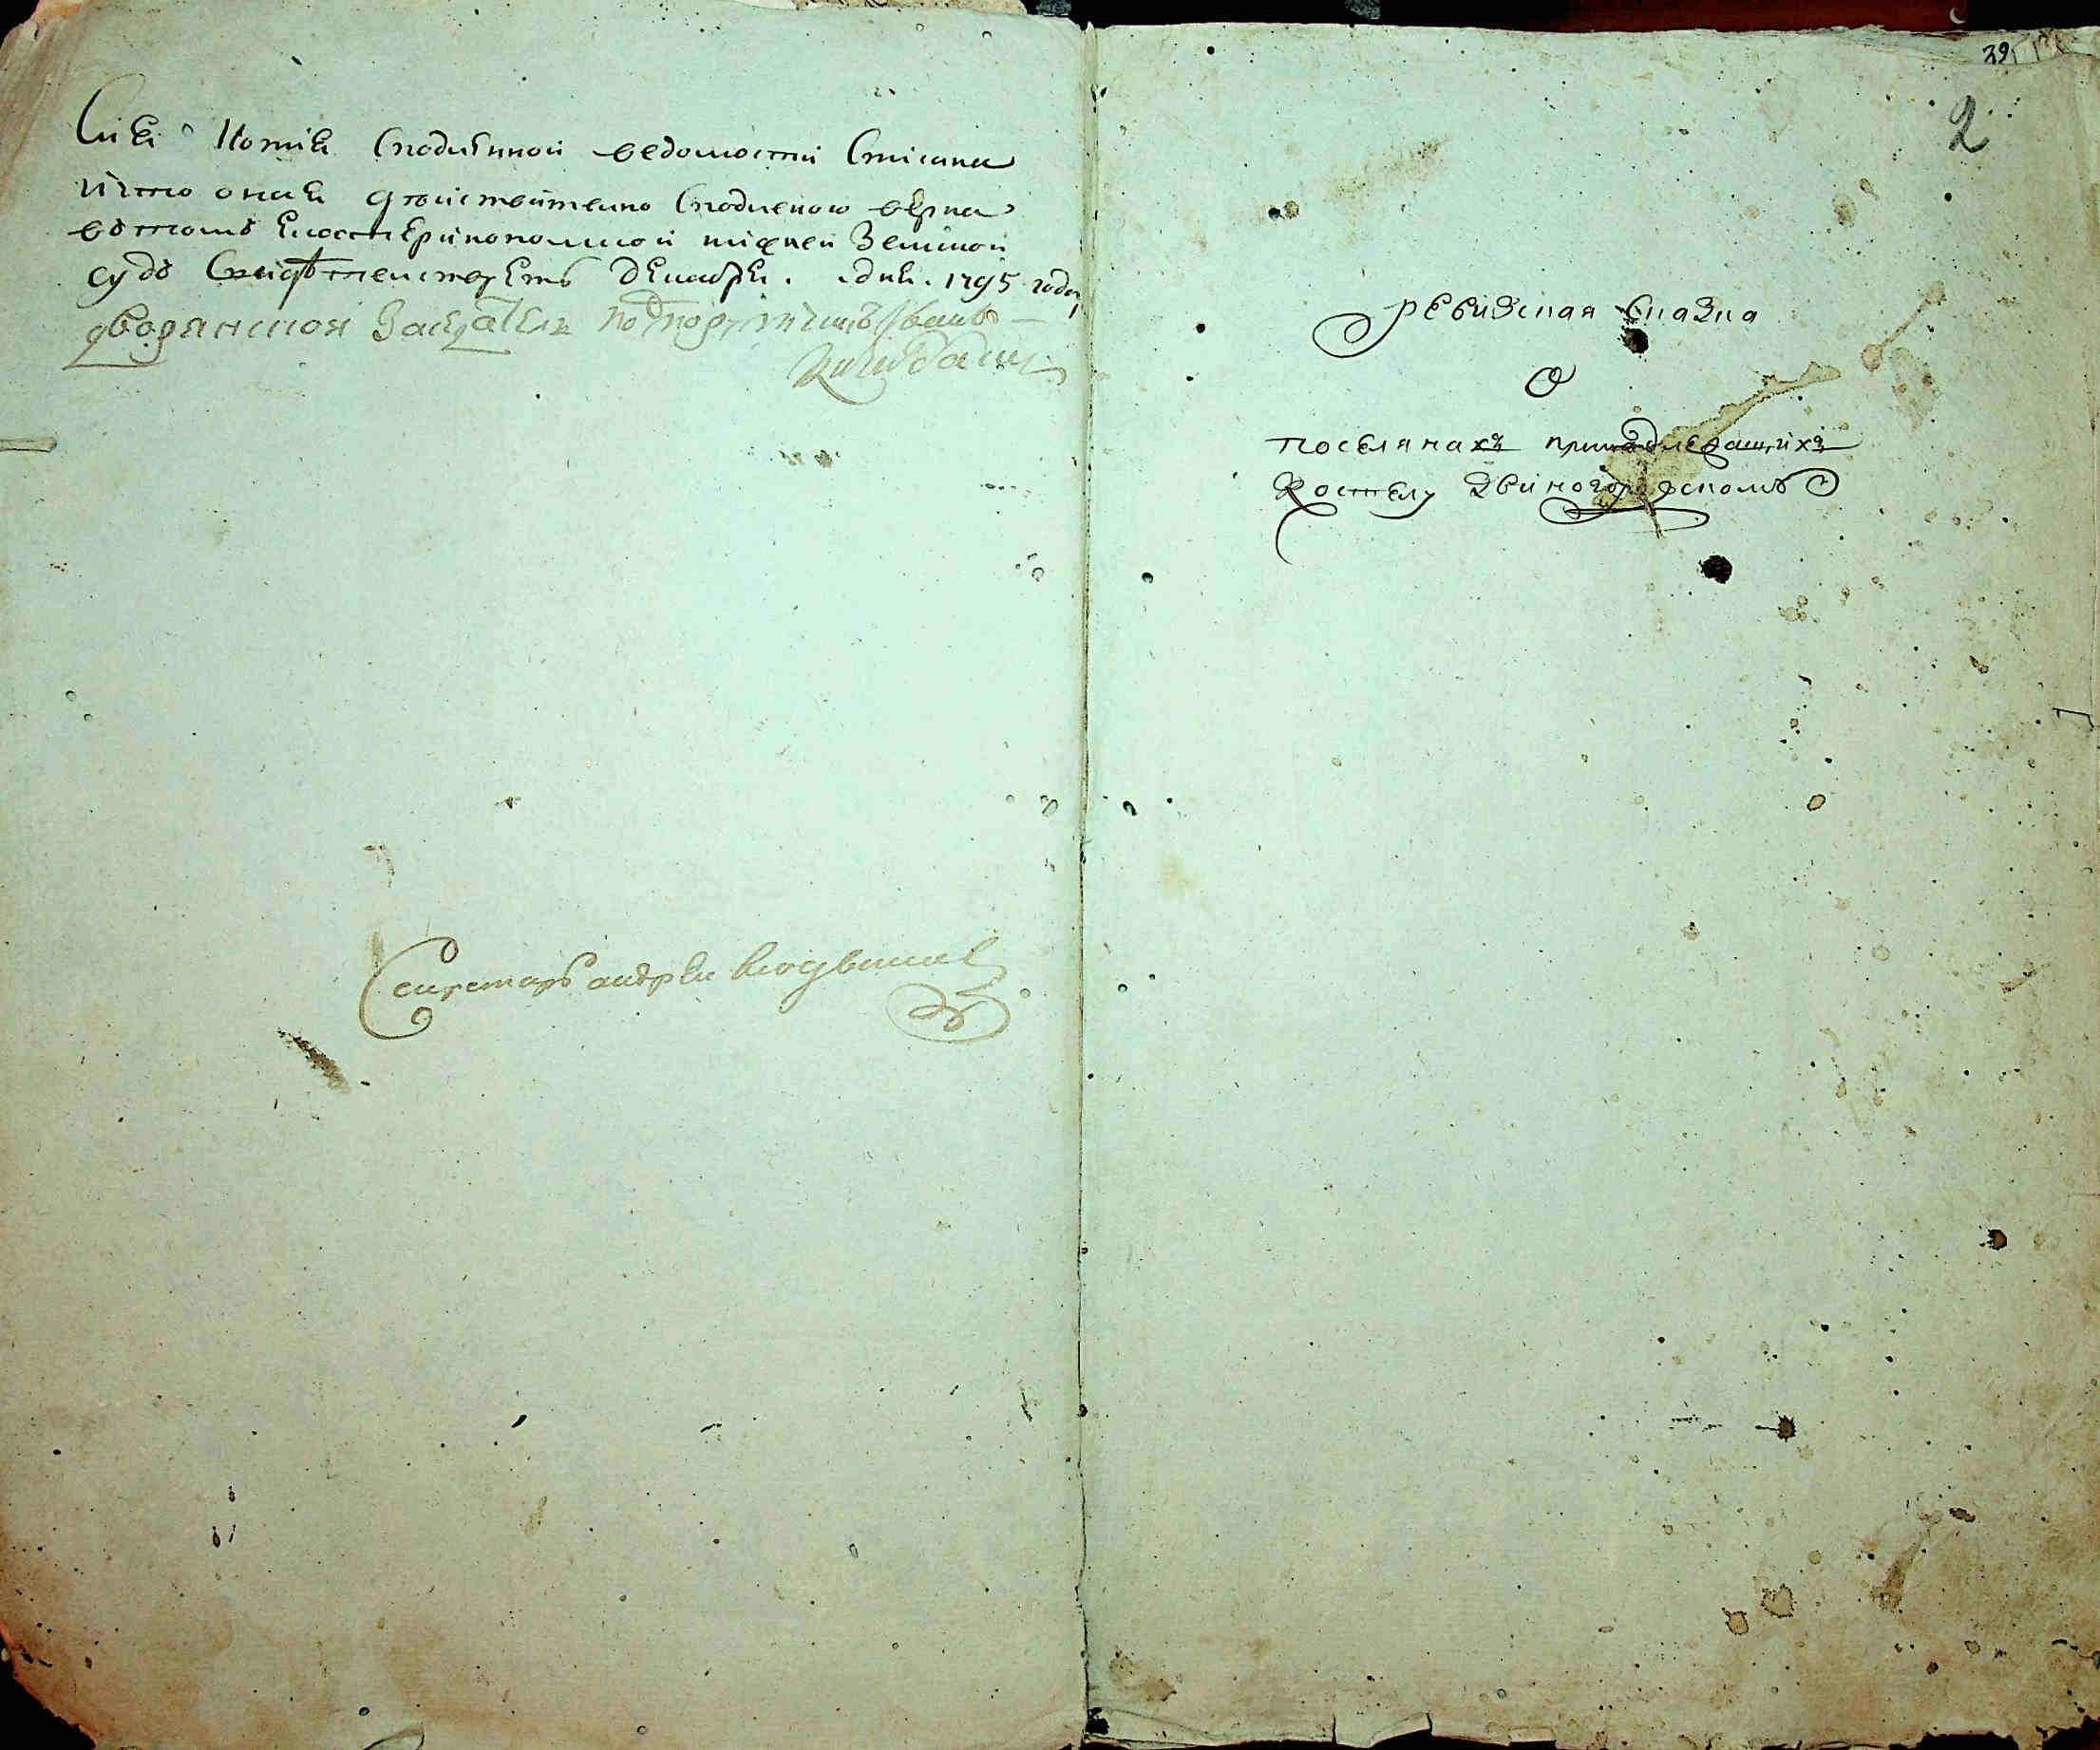 Сия Копия Сподлинной ведомости Списана
и что оная действительно Сподленою верна
втомъ Екатеринопольской нижней Земской
судъ Свидетелствуетъ декабря . дня . 1795 года,
дворянской Заседатель подпорутчикъ Иванъ
Секретарь андрей
39
2
ревизская Сказка
О
поселянахъ принадлежащихъ
Костелу Звиногородскомъ